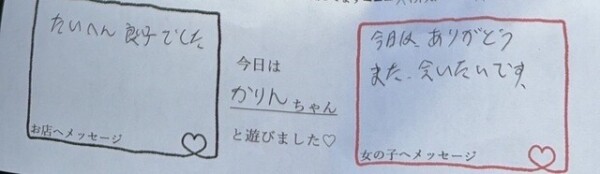 たいへん 良子でした
お店へメッセージ
今日は
かりんちゃん
と遊びました♡
今日は、ありがとう
また、会いたいです、
女の子へメッセージ